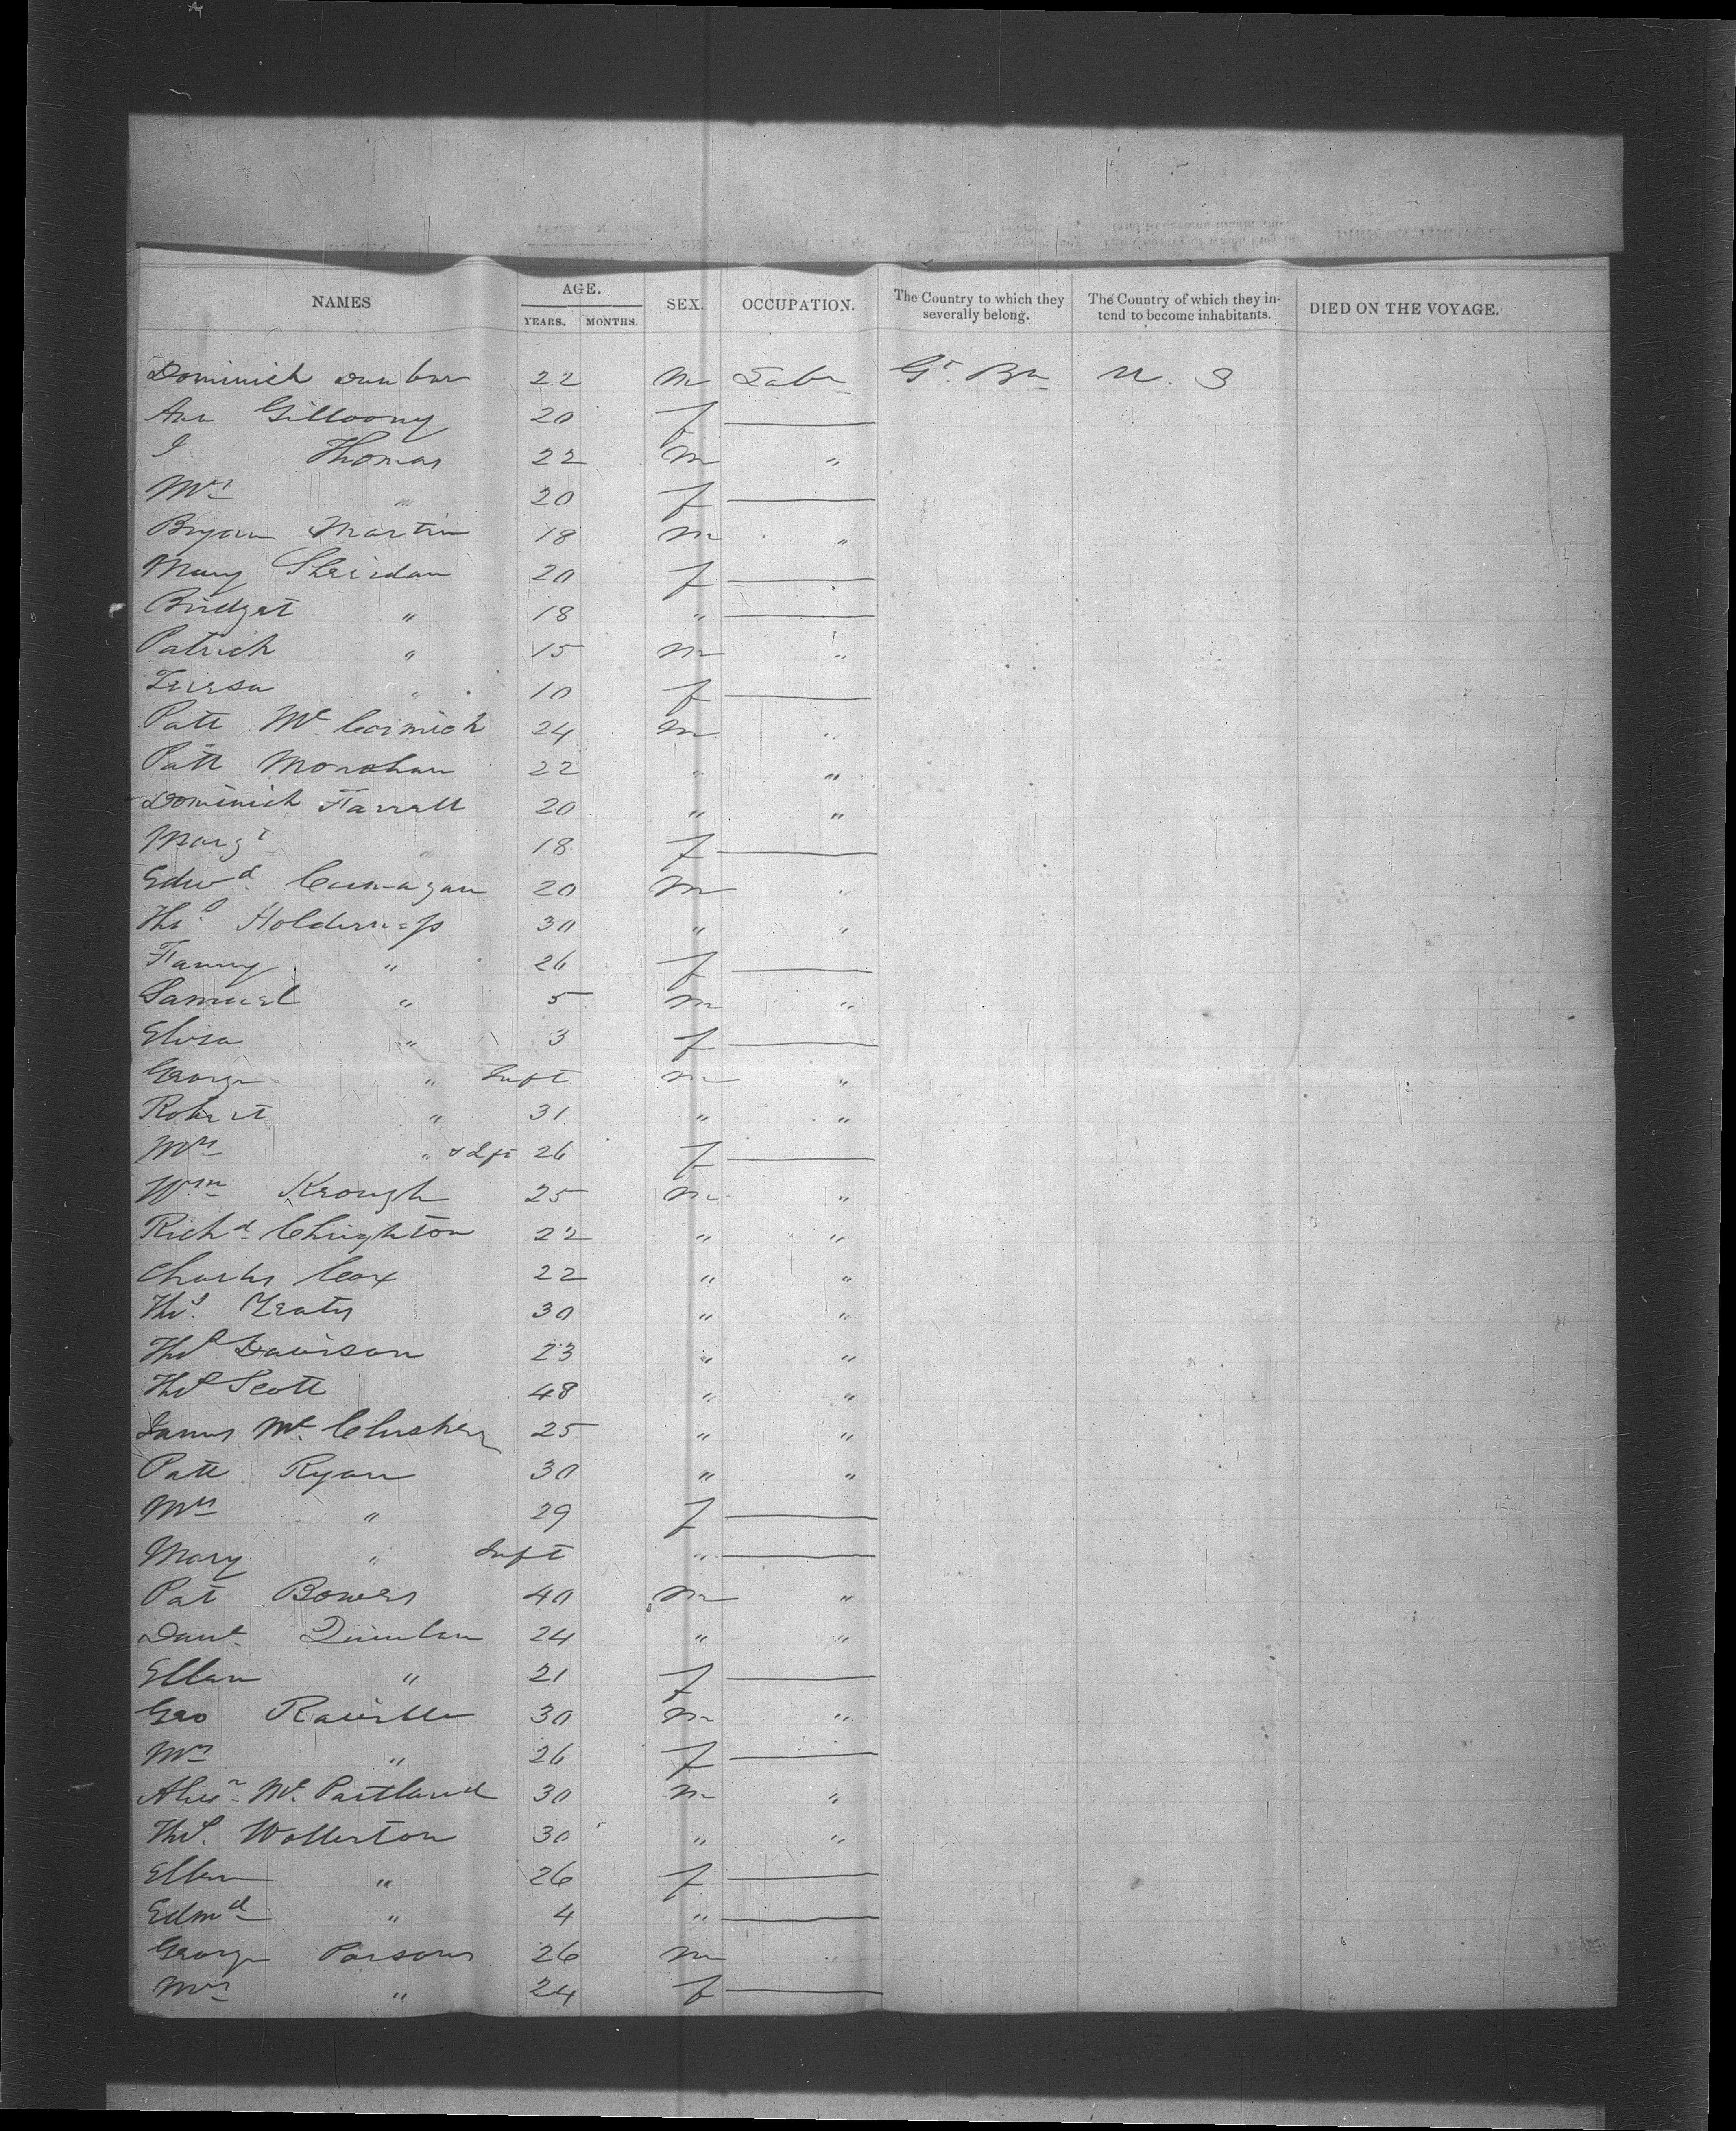 NAMES AGE. YEARS. MONTHS. SEX. OCCUPATION. The Country to which they severally belong. The Country of which they intend to become inhabitants. DIED ON THE VOYAGE.
Dominick Dunbar 22 m Labr Gt. Bn U. S
Ann Gilloony 20 f
J Thomas 22 m "
Mrs " 20 f
Bryan Martin 18 m "
Mary Sheridan 20 f
Bridget " 18 "
Patrick " 15 m "
Teresa " 10 f
Patt Mc Cormick 24 m "
Patt Monohan 22 " "
Dominick Farrell 20 " "
Margt " 18 f
Edwd. 20 m "
Thos. Holderness 30 " "
Fanny " 26 f
Samuel " 5 m "
Elisa " 3 f
George " Inft m "
Robert " 31 " "
Mrs " & Ift 26 f
Wm Keough 25 m "
Richd. Chrighton 22 " "
Charles Cox 22 " "
Thos. Yeates 30 " "
Thos Davison 23 " "
Thos Scott 48 " "
James Mc Clusker 25 " "
Patt Ryan 30 " "
Mrs " 29 f
Mary " Inft "
Pat Bowers 40 m "
Danl. Quinlan 24 " "
Ellen " 21 f
Geo 30 m "
Mrs " 26 f
Mc Partland 30 m "
Thos. Wollerton 30 " "
Ellen " 26 f
Edmd " 4 "
George Parsons 26 m "
Mrs " 24 f